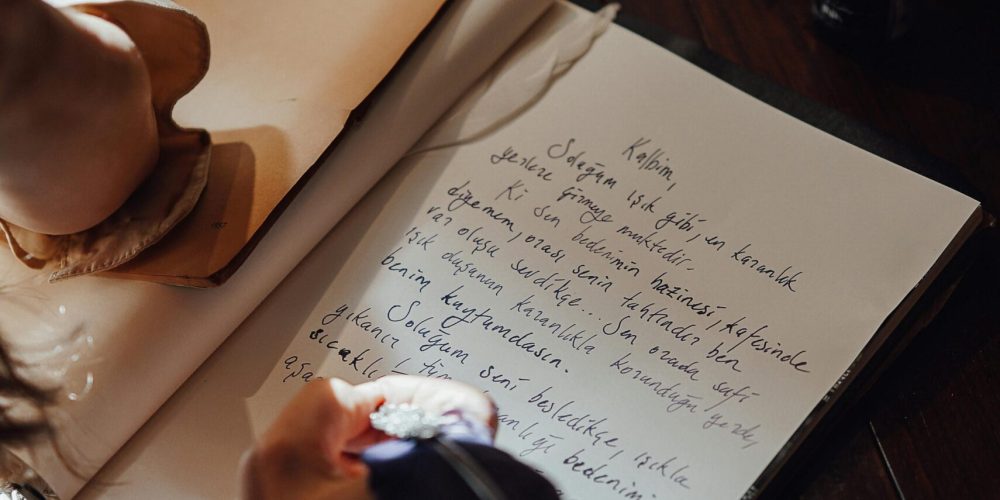 Kalbim,
Soluğum ışık gibi, en karanlık
yerlere girmeye muktedir.
Ki sen bedenimin hazinesi, kafesinde
diyemem, orası senin tahtındır ben
var oluşu sevdikçe... Sen orada safi
ışık duşunan karanlıkla korunduğu yerde,
benim kuytumdasın.
Soluğum seni besledikçe, ışıkla
yıkanır bedenimi
sıcaklı